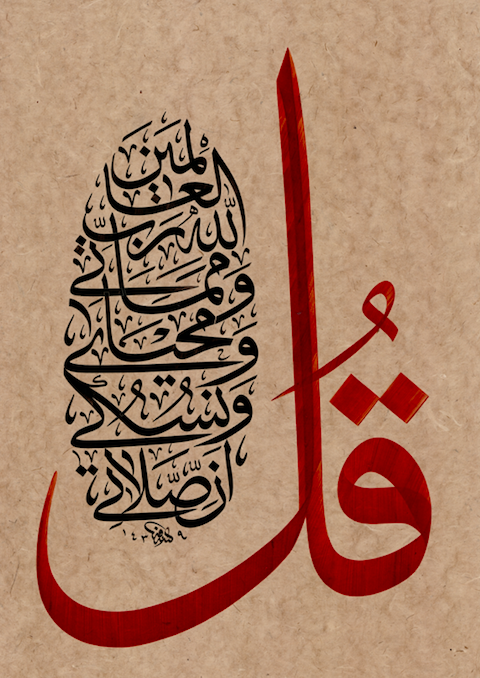 قُل
إنَّ صَلَاتِي
وَنُسُكِي
وَمَحْيَايَ
وَمَمَاتِي
لِلَّهِ رَبِّ
الْعَالَمِينَ